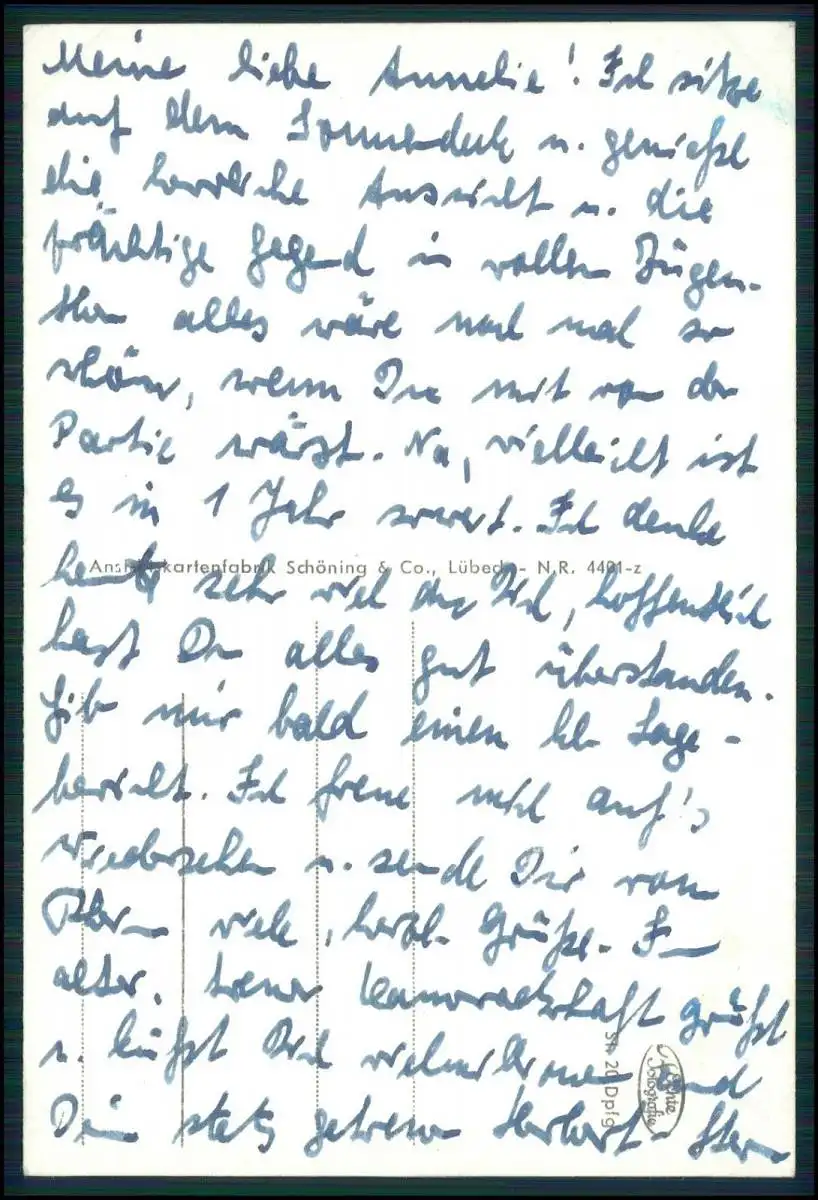 Meine liebe Annelie! Ich sitze
auf dem Sonnendeck u. genieße
die herrliche Aussicht u. die
prächtige Gegend in vollen Zügen.
alles wäre noch mal so
schön, wenn Du mit von der
Partie wärst. Na, vielleicht ist
es in 1 Jahr soweit. Ich denke
Ansichtskartenfabrik Schöning & Co., Lübeck - N.R. 4401-z
heute sehr viel an Dich, hoffentlich
hast Du alles gut überstanden.
Gib mir bald einen kl. Lage-
bericht. Ich freue mich auf's
Wiedersehen u. sende Dir vom
Rhein viele, herzl. Grüße. In
alter, treuer Kameradschaft grüßt
u. küßt Dich vielmals und
Dein stets getreuer Herbert
St 20 Dpfg
Echte Fotografie